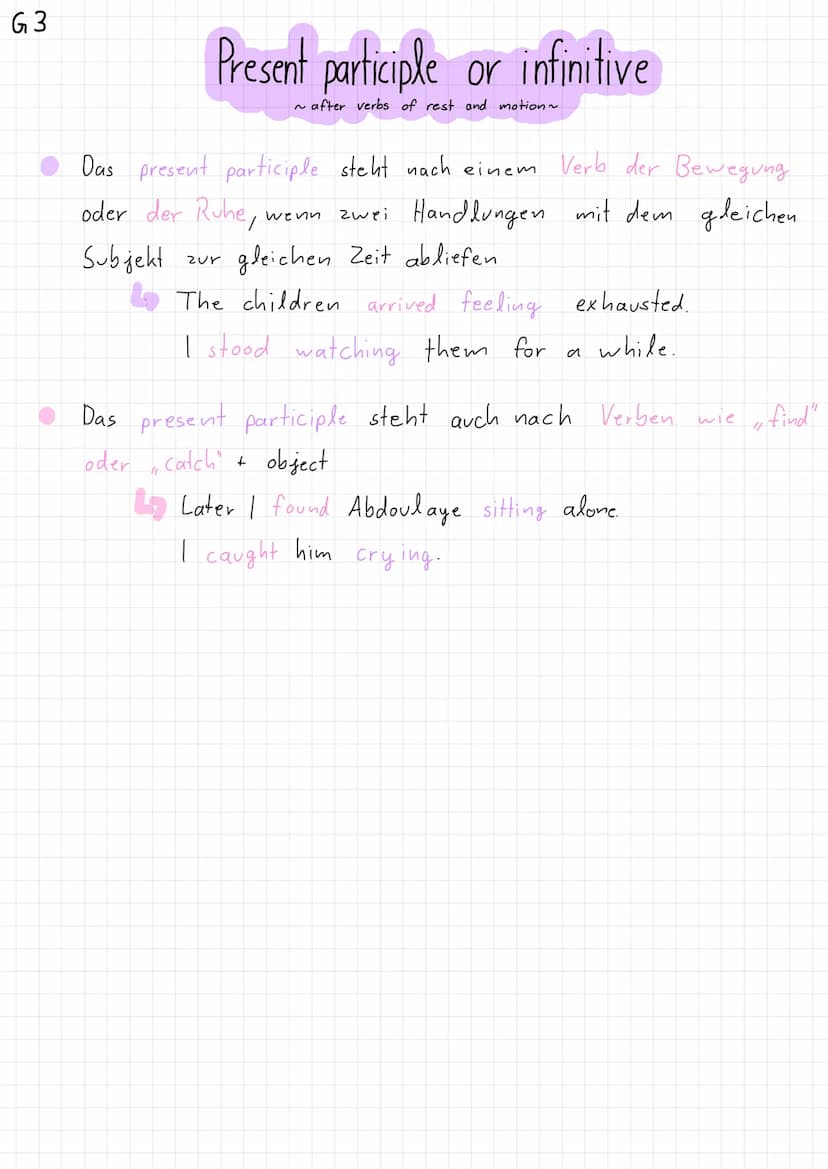 G3
Present participle or infinitive
~ after verbs of rest and motion ~
Das present participle steht nach einem Verb der Bewegung
oder der Ruhe, wenn zwei Handlungen mit dem gleichen
Subjekt zur gleichen Zeit abliefen
The children arrived feeling exhausted.
I stood watching them for a while.
Das present participle steht auch nach Verben wie „find"
oder „catch" + object
Later I found Abdoulaye sitting alone.
I caught him crying.